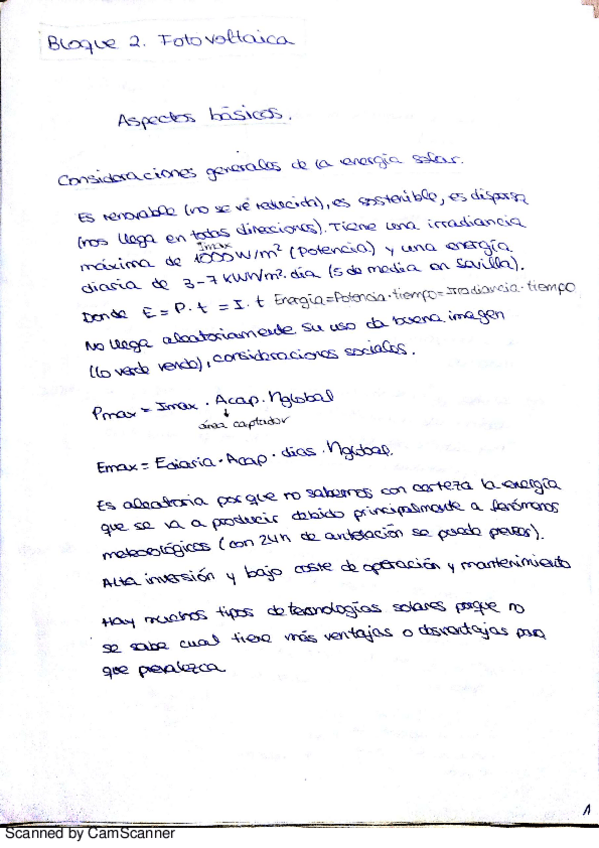 Bloque 2. Fotovoltaica
Aspectos básicos.
Consideraciones generales de la energía solar.
Es renovable (no se vé reducida), es sostenible, es dispersa
(nos llega en todas direcciones). Tiene una irradiancia
Imax
máxima de 1000 W/m² (Potencia) y una energía
diaria de 3-7 KWh/m². día (5 de media en Sevilla).
Donde E = P. t = I. t Energía=Potencia·tiempo=Irradiancia·tiempo
No llega aleatoriamente su uso da buena imagen
(lo verde vende), consideraciones sociales.
Pmax = Imax · Acap. ηglobal
área captador
Emax = Ediaria · Acap · días · ηglobal.
Es aleatoria porque no sabemos con certeza la energía
que se va a producir debido principalmente a fenómenos
meteorológicos (con 24h de antelación se puede prever).
Alta inversión y bajo coste de operación y mantenimiento
Hay muchos tipos de tecnologías solares porque no
se sabe cual tiene más ventajas o desventajas para
que prevalezca
1
Scanned by CamScanner